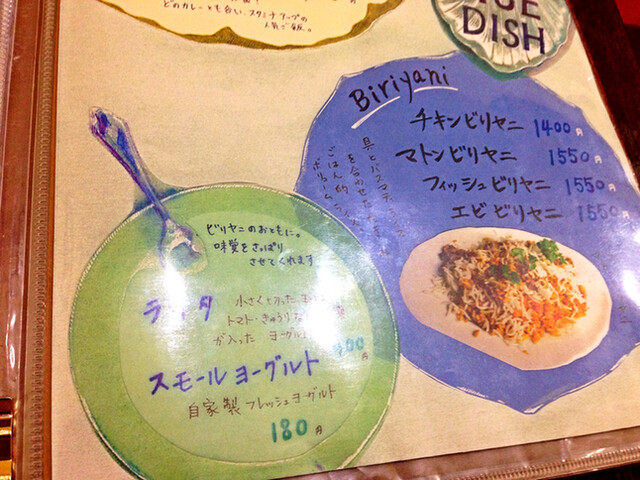 どのカレーとも合い、スタミナアップの
人気ご飯。
DISH
Biriyani
チキンビリヤニ 1400円
マトンビリヤニ 1550円
フィッシュビリヤニ 1550円
エビビリヤニ 1550円
具とバスマティ
を合わせた
ごはん的
ビリヤニのおともに。
味質をさっぱり
させてくれます
ライタ
小さく
トマト・きゅうり
が入った ヨーグル
スモールヨーグルト
自家製フレッシュヨーグルト
180円